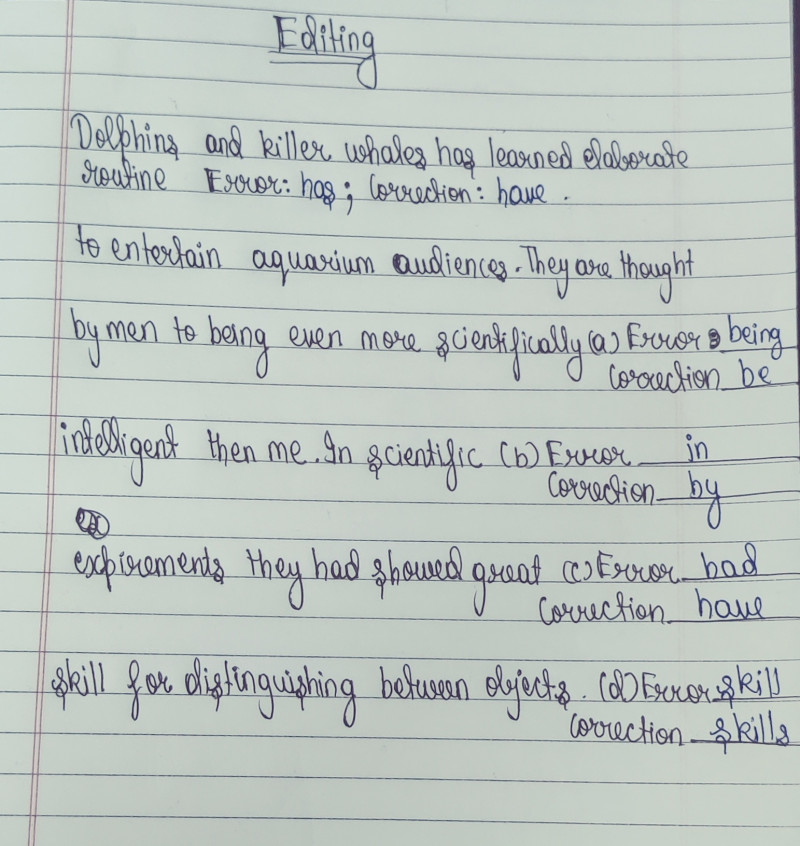 Editing
Dolphins and killer whales has learned elaborate
routine Error: has; Correction: have.
to entertain aquarium audiences. They are thought
by men to being even more scientifically (a) Error being
correction be
intelligent then me. In scientific (b) Error in
correction by
expirements they had showed great (c) Error had
correction have
skill for distinguishing between objects. (d) Error skill
correction skills